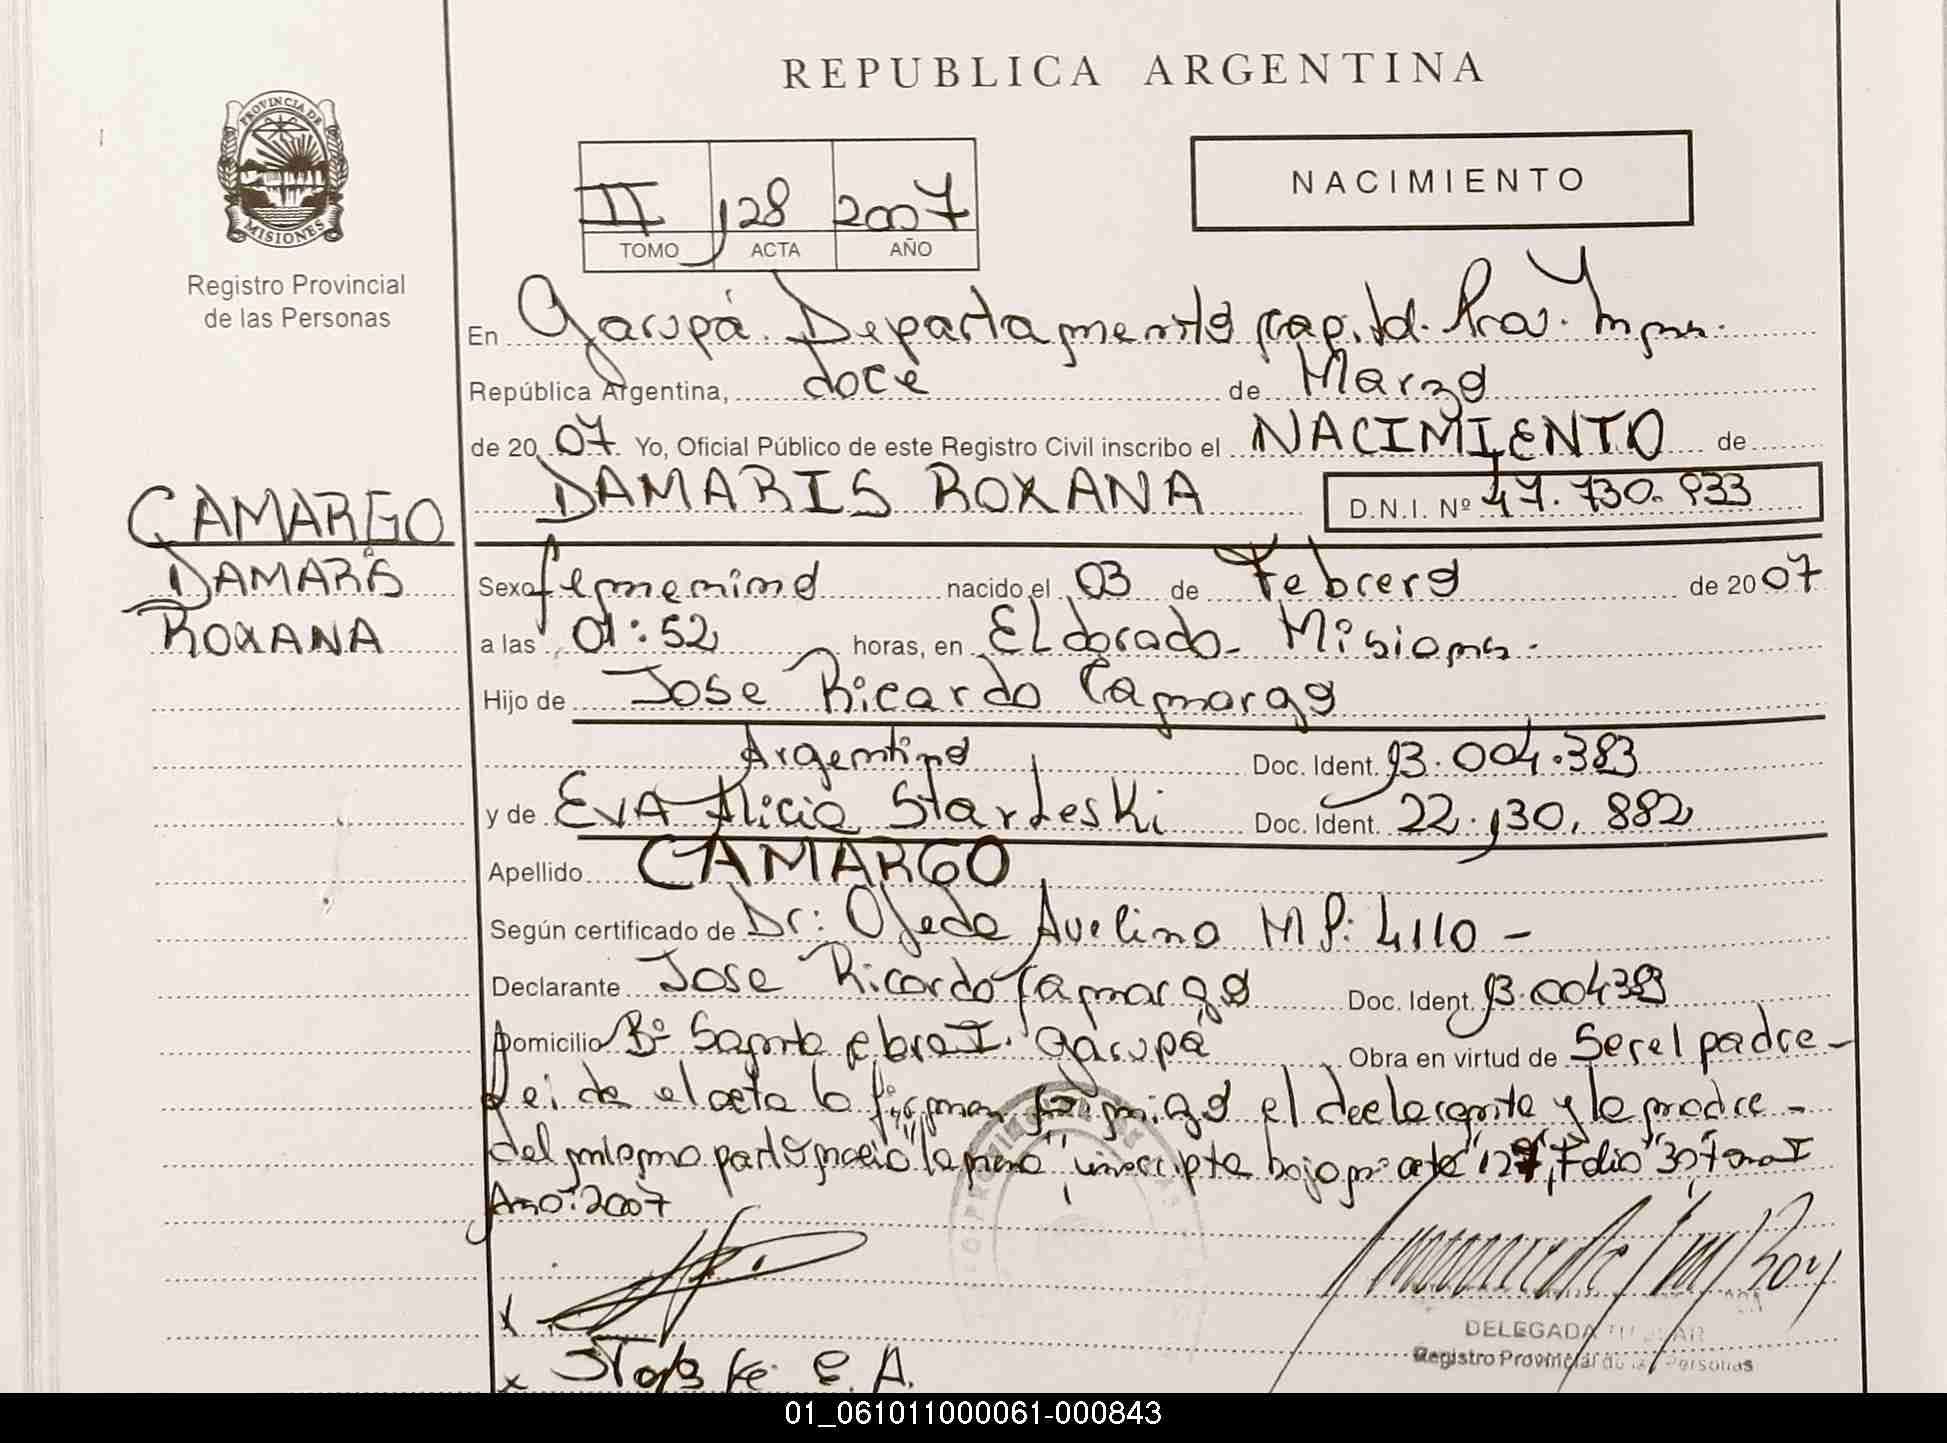 REPUBLICA ARGENTINA
PROVINCIA DE
MISIONES
Registro Provincial
de las Personas
II 128 2007
TOMO ACTA AÑO
NACIMIENTO
En Garupá. Departamento Capital. Prov. Mnes.
República Argentina, doce de Marzo
de 2007 Yo, Oficial Público de este Registro Civil inscribo el NACIMIENTO de
DAMARIS ROXANA D.N.I. Nº 47.730.933
CAMARGO
DAMARIS
ROXANA
Sexo femenino nacido el 03 de Febrero de 2007
a las 01:52 horas, en ELdorado - Misiones.
Hijo de Jose Ricardo Camargo
Argentino Doc. Ident. 13.004.383
y de EVA Alicia Starleski Doc. Ident. 22.130.882
Apellido CAMARGO
Según certificado de Dr: Ojeda Avelino MP: 4110 -
Declarante Jose Ricardo Camargo Doc. Ident. 13.004383
Domicilio Bº Santa I. Garupá Obra en virtud de Ser el padre -
Leida el acta la firman conmigo el declarante y la madre -
del mismo parto nació "la niña" inscripta bajo nº acta "127", Folio "30" Tomo I
Año: 2007
x
x E. A.
DELEGADA TITULAR
Registro Provincial de las Personas
01_061011000061-000843